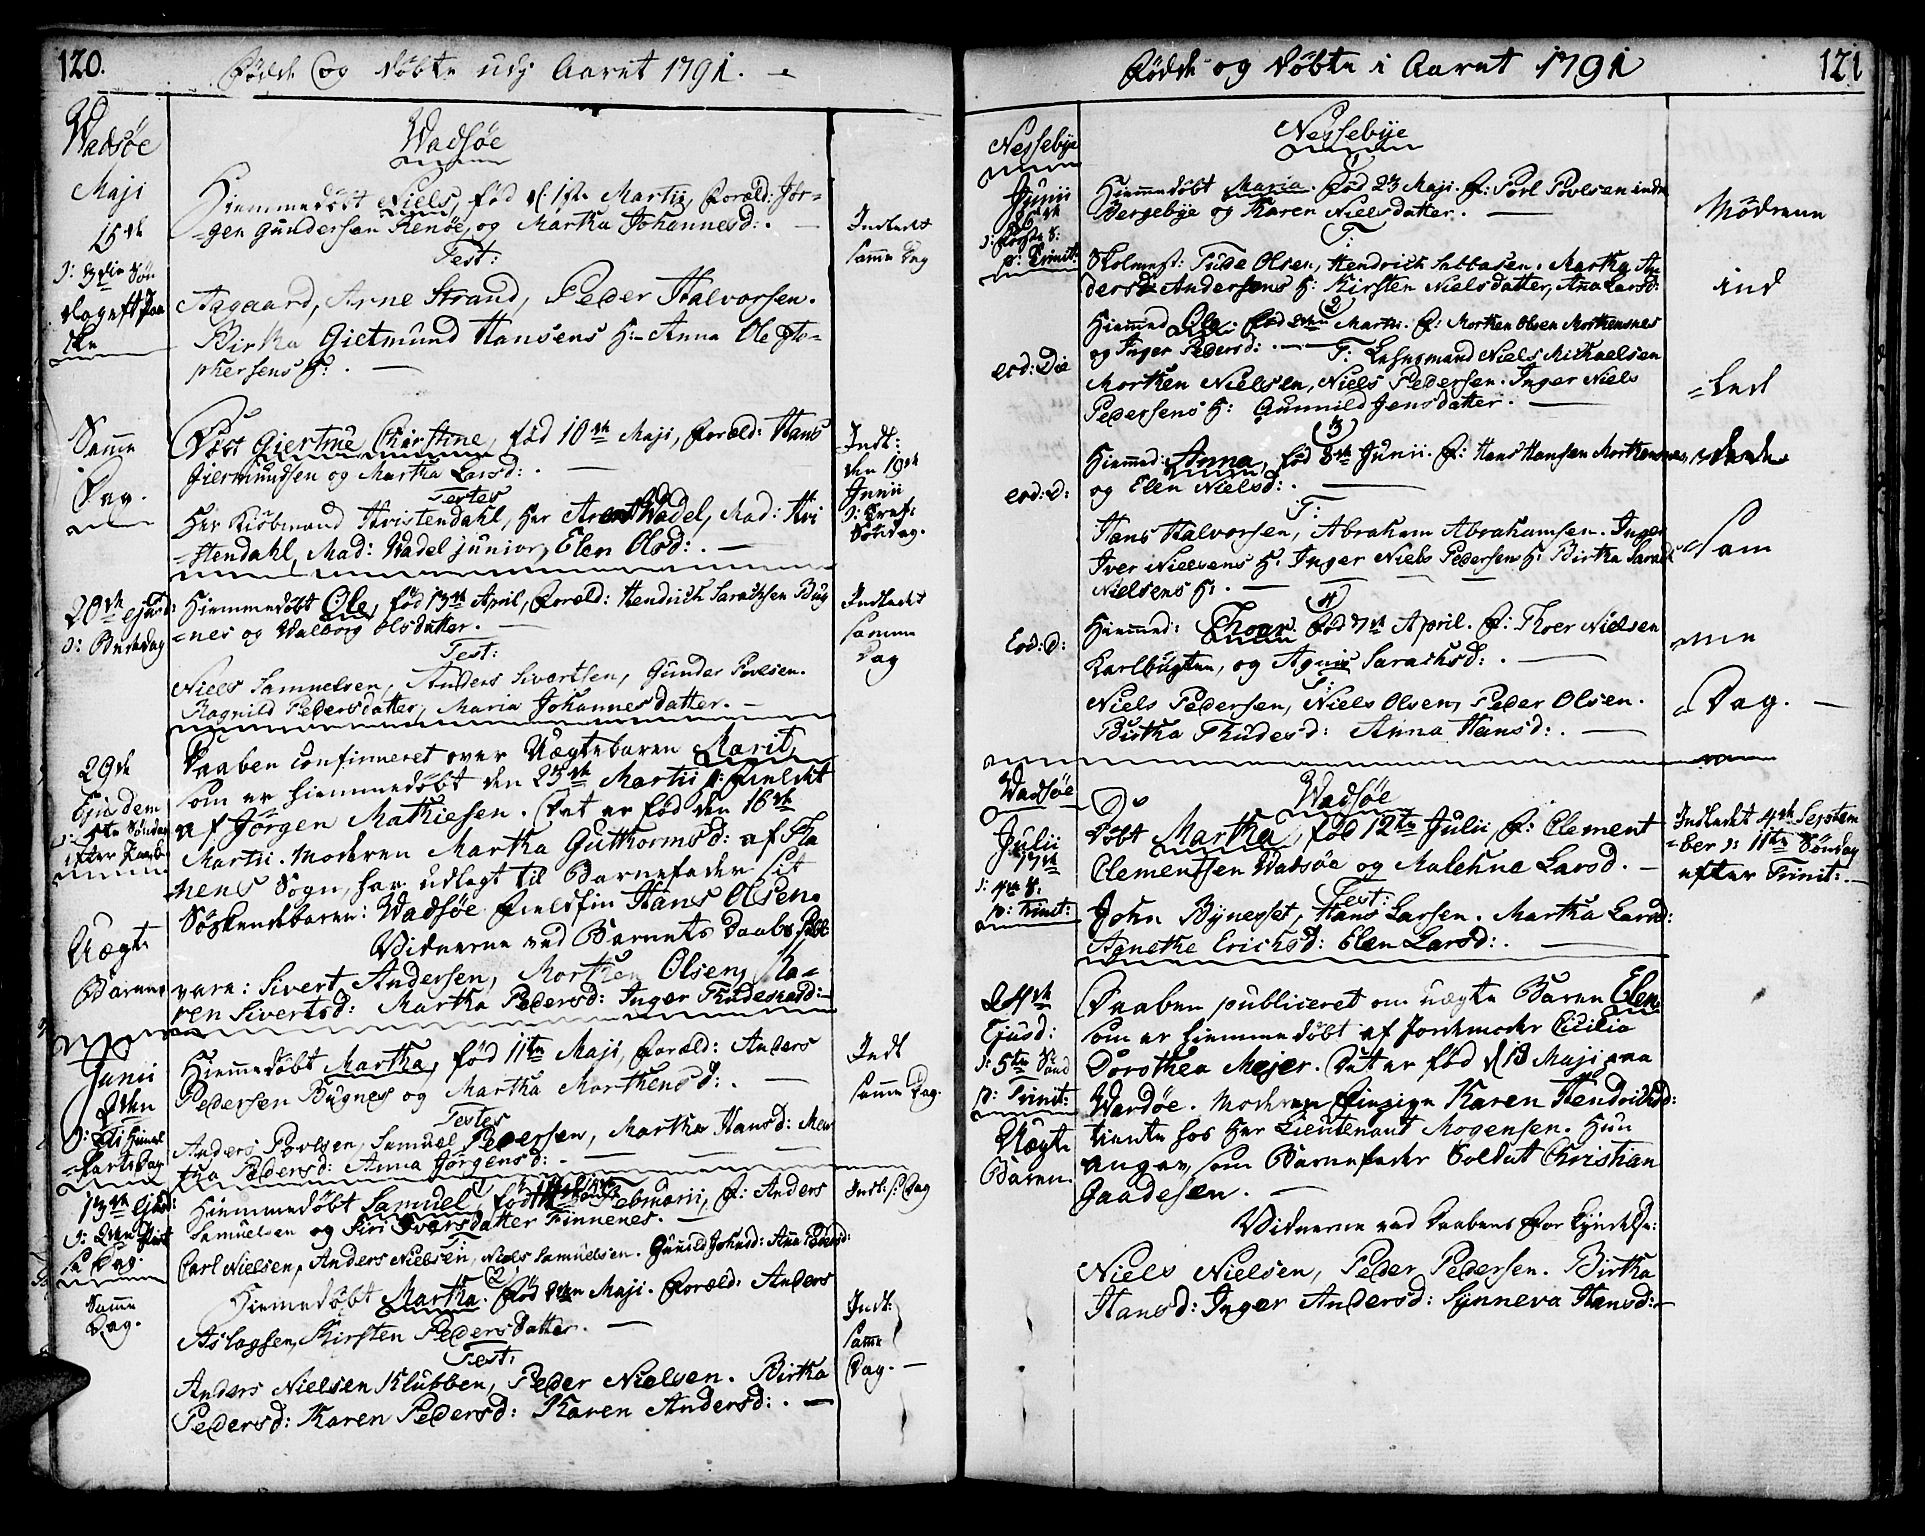 120.
Fødde og døbte udj Aaret 1791.
Wadsøe
Maji
15de
ɔ: 3die Søn
dag eft Paa
ske
Wadsøe
Hiemmedøbt Niels, fød d: 1ste Martii, Foræld: Jør-
gen Gundersen Renøe, og Martha Johannesd:
Test:
Aagaard, Arne Strand, Peder Halvorsen.
Birtha Gietmund Hansens H: Anna Ole
phersens H:
Indledt
samme Dag
Samme
Dag.
Døbt Giertine Christine, fød 10de Maji, Foræld: Hans
Giermundsen og Martha Larsd:
Testes
Her Kiøbmand Hvistendahl, Her Arent Wadel, Mad: Hvi
stendahl, Mad: Wadel junior, Elen Olsd:
Indt:
den 19de
Junii
ɔ: Tref:
Søndag.
20de ejusd:
ɔ: Bededag
Hiemmedøbt Ole, fød 13de April, Foræld: Hendrich Sarachsen Bug
nes og Walborg Olsdatter.
Test:
Niels Samuelsen, Anders Sivertsen, Gunder Povelsen.
Ragnild Pedersdatter, Maria Johannesdatter.
Indledet
samme
Dag
29de
Ejusdem
ɔ: 5te Søndag
efter Paaske
Uægte
Barn
Daaben confirmeret over Uægtebarnet Marit,
som er hiemmedøbt den 25de Martii paa Fieldet
af Jørgen Mathiesen. Det er fød den 16de
Martii. Moderen Martha Guthormsd: af Tha
nens Sogn, har udlagt til Barnefader sit
Søskendebarn: Wadsøe Fieldfin Hans Olsen.
Vidnerne ved Barnets Daabs
vare: Sivert Andersen, Morthen Olsen, Ka-
ren Sivertsd: Martha Pedersd: Inger Thudesensd:
Junii
2den
ɔ: Chr: Himmel
fartsdag
Hiemmedøbt Martha, fød 11te Maji, Foræld: Anders
Pedersen Bugnes og Martha Morthensd:
Testes
Anders Povelsen, Samuel Pedersen, Martha Hansd: Mar
tha Pedersd: Anna Jørgensd:
Indt
samme Dag.
13de Ejusd:
ɔ: 2den Pint
se Dag.
Hiemmedøbt Samuel, fød Februarii, F: Anders
Samuelsen og Siri Iversdatter Finnenes.
Carl Nielsen, Anders Nielsen, Niels Samuelsen. Gunild Johnsd: Ana Pedersd:
Indt: s: Dag
Samme
Dag.
2
Hiemmedøbt Martha. fød 2den Maji. Foræld: Anders
Aslagsen, Kirsten Pedersdatter.
Test:
Anders Nielsen Klubben, Peder Nielsen. Birtha
Pedersd: Karen Pedersd: Karen Andersd:
Indt:
samme
Dag.
Fødde og døbte i Aaret 1791
121
Nessebye
Junii
26de
ɔ: Første S:
p: Trinit:
Nessebye
Hiemmedøbt Maria. fød 23 Maji. F: Poel Povelsen indre
Bergebye og Karen Nielsdatter.
T:
Skolemest: Tude Olsen, Hendrich Sabbasen. Martha An
dersd: Andersens H: Kirsten Nielsdatter, Ana Larsd:
2
Hiemmed Ole. fød 2den Martii. F: Morthen Olsen Morthensnes
og Inger Pedersd: T: Lehnsmand Niels Michaelsen
Morthen Nielsen, Niels Pedersen. Inger Niels
Pedersens H: Gunnild Jensdatter.
eod: Die
3
Hiemmed: Anna, fød 8de Junii. F: Hans Hansen Morthensnes
og Elen Nielsd:
T:
Hans Halvorsen, Abraham Abrahamsen. Inger
Iver Nielsens H: Inger Niels Pedersens H: Birtha Sarach
Nielsens H:
eod: D:
4
Hiemmed: Thoer fød 7de April. F: Thoer Nielsen
Karlbugten, og Agnis Sarachsd:
T:
Niels Pedersen, Niels Olsen, Peder Olsen.
Birtha Thudesd: Anna Hansd:
Eod: D:
Mødrene
ind
-led
dede
Sam
me
Dag.
Wadsøe
Julii
17de
ɔ: 4de S:
p: Trinit:
Wadsøe
Døbt Martha, fød 12te Julii F: Clement
Clementsen Wadsøe og Malehne Larsd.
Test:
John Bynesset, Hans Larsen. Martha Larsd:
Agnethe Erichsd: Elen Larsd:
Indledet 4de Septem
ber ɔ: 11te Søndag
efter Trinit:
24de
Ejusd:
ɔ: 5te Sønd
p: Trinit:
Uægte
Barn.
Daaben publiceret om uægte Barn Elen
som er hiemmedøbt af Jordemoder Cicilia
Dorothea Mejer. Det er fød d 13 Maji paa
Wardøe. Moderen Karen Hendrichsd:
tiente hos Her Lieutenant Mogensen. Hun
angav som Barnefader Soldat Christian
Gaadesen.
Vidnerne ved Daabens Forkyndelse:
Niels Nielsen, Peder Pedersen. Birtha
Hansd: Inger Andersd: Synneva Hansd: